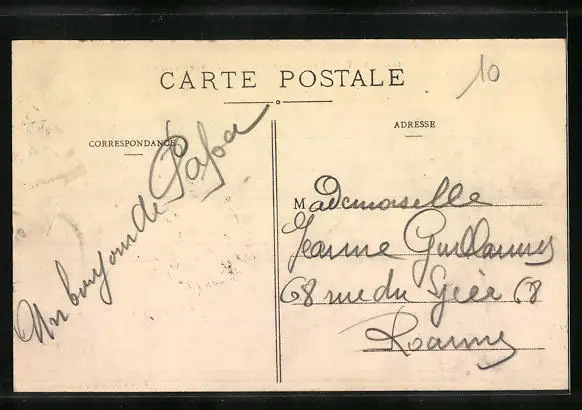 CARTE POSTALE
10
CORRESPONDANCE
ADRESSE
Un bonjour de Papa
Mademoiselle
Jeanne
68 rue du Lycée 68
Roanne